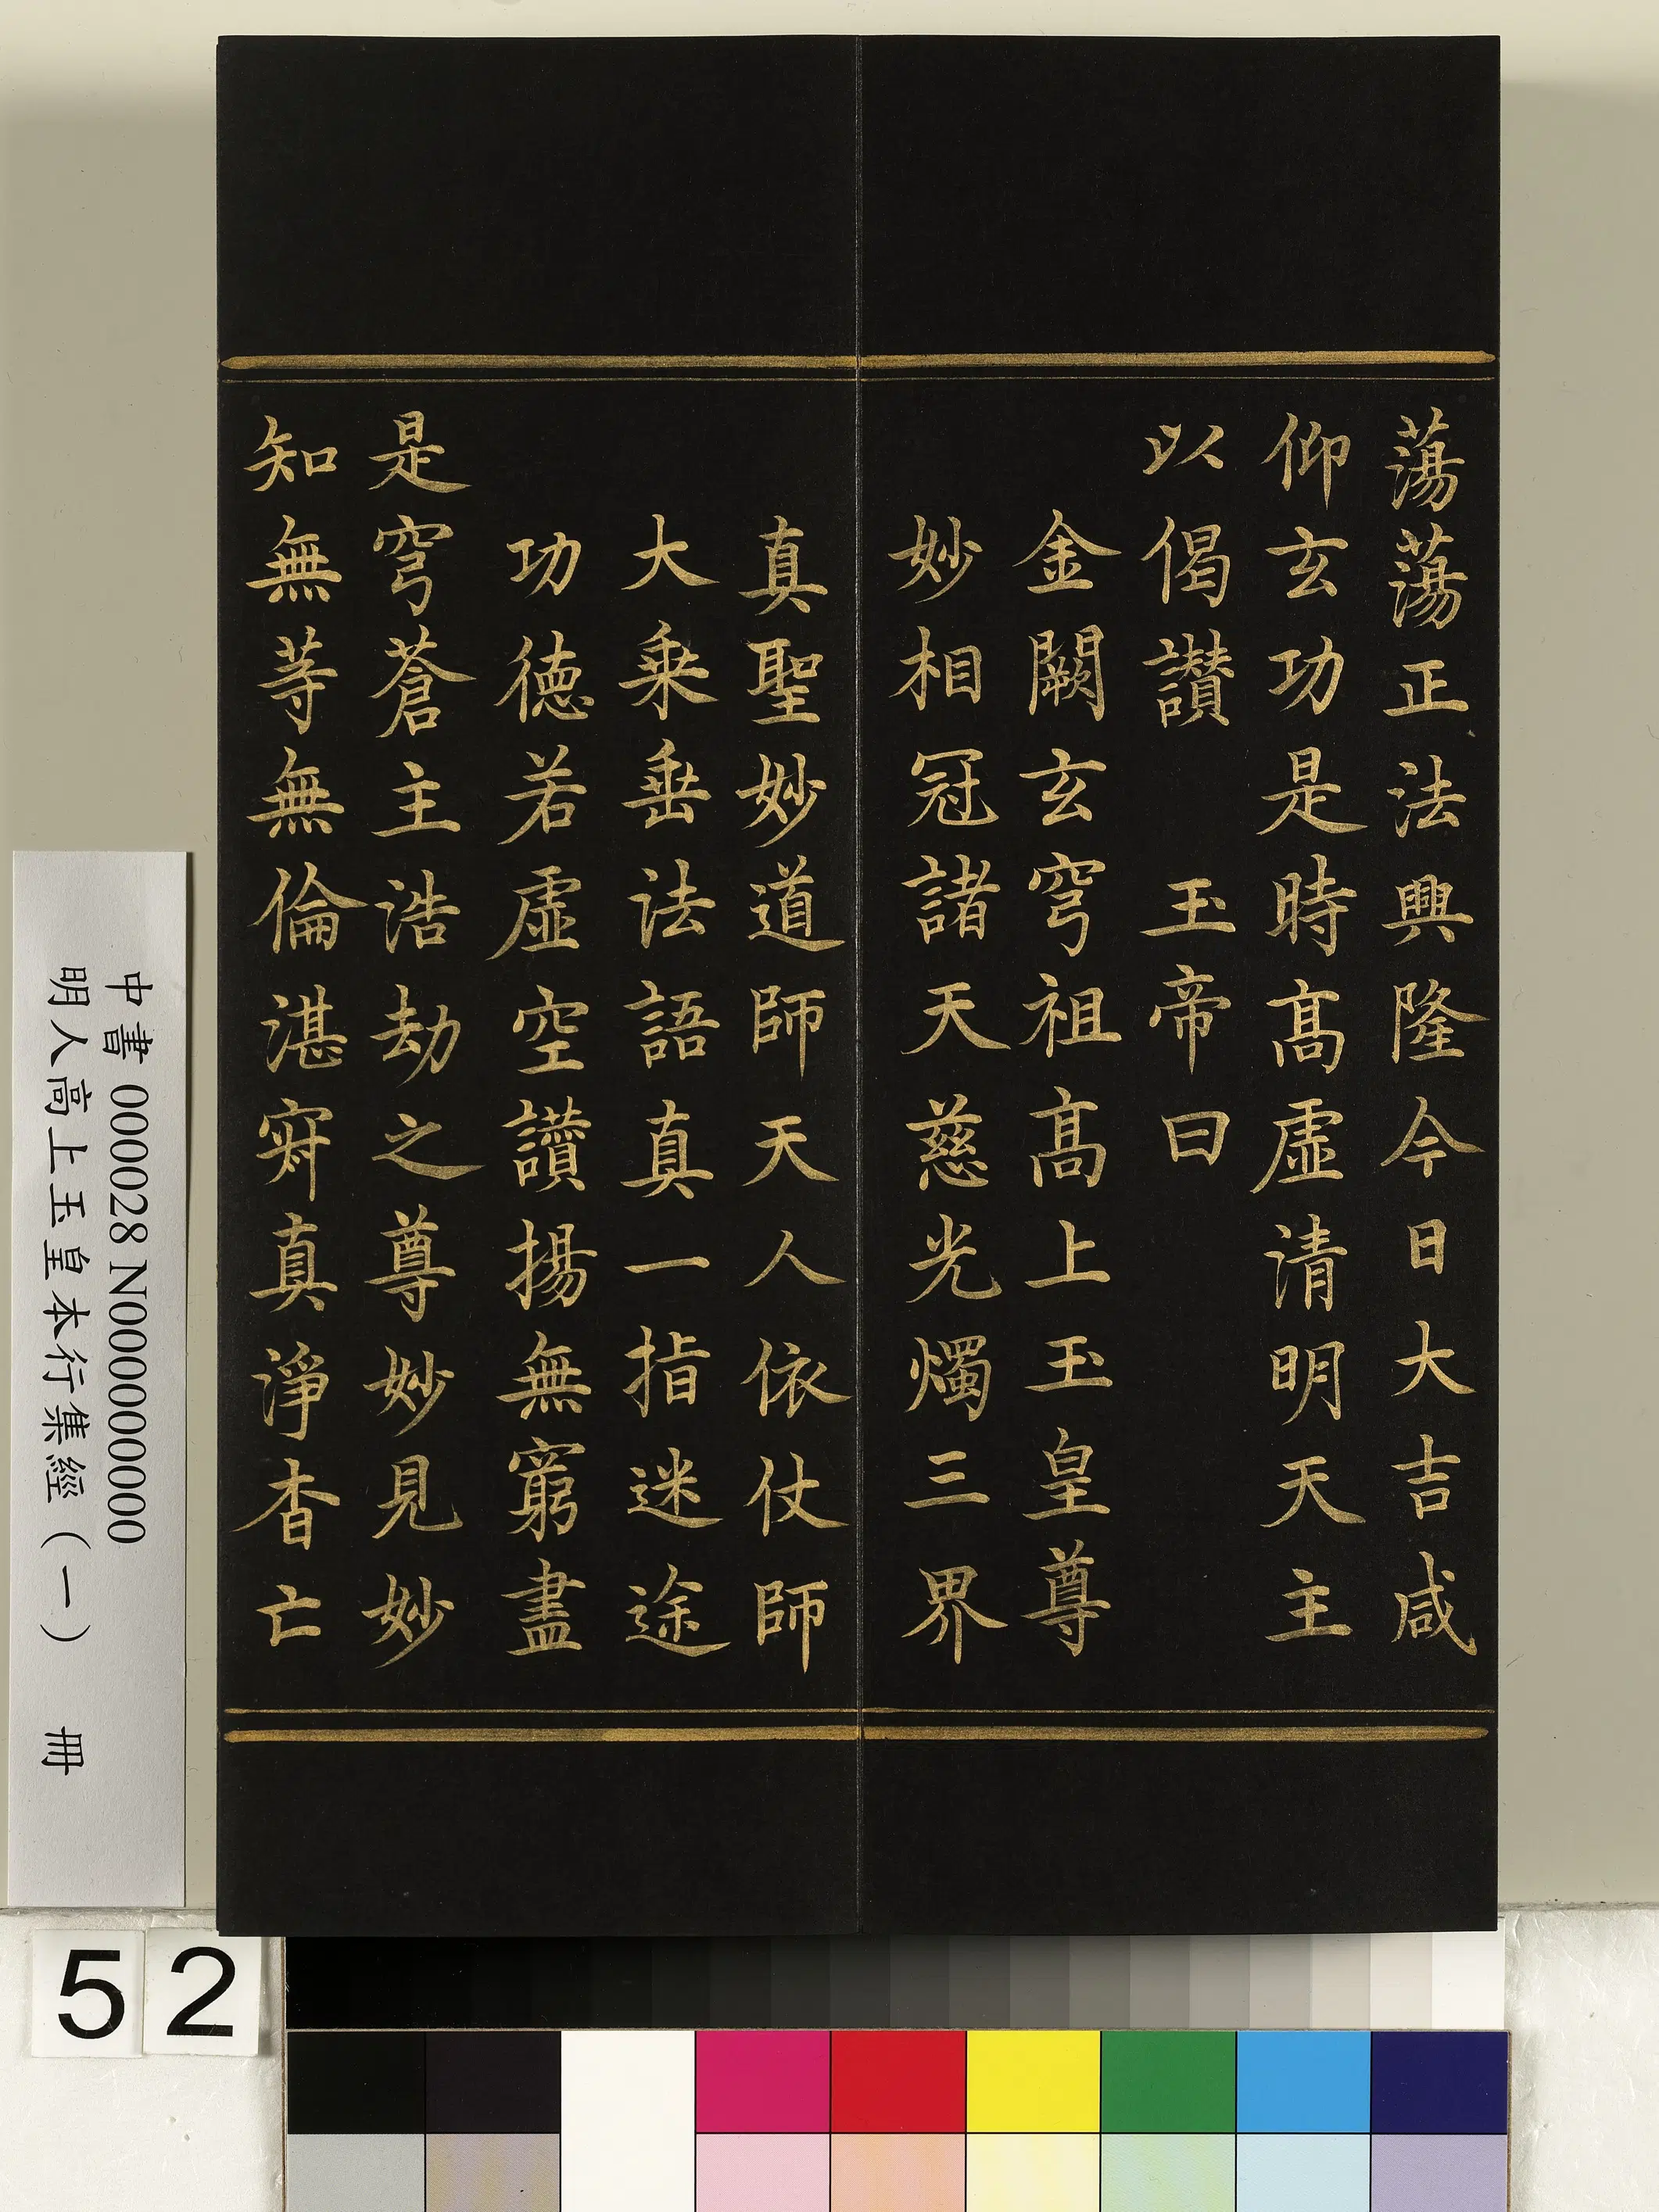 蕩蕩正法興隆今日大吉咸
仰玄功是時高虛清明天主
以偈讚 玉帝曰
金闕玄穹祖高上玉皇尊
妙相冠諸天慈光燭三界
真聖妙道師天人依仗師
大乘垂法語真一指迷途
功德若虛空讚揚無窮盡
是穹蒼主浩劫之尊妙見妙
知無等無倫湛寂真淨杳亡
中書 000028 N000000000
明人高上玉皇本行集經（一） 冊
52